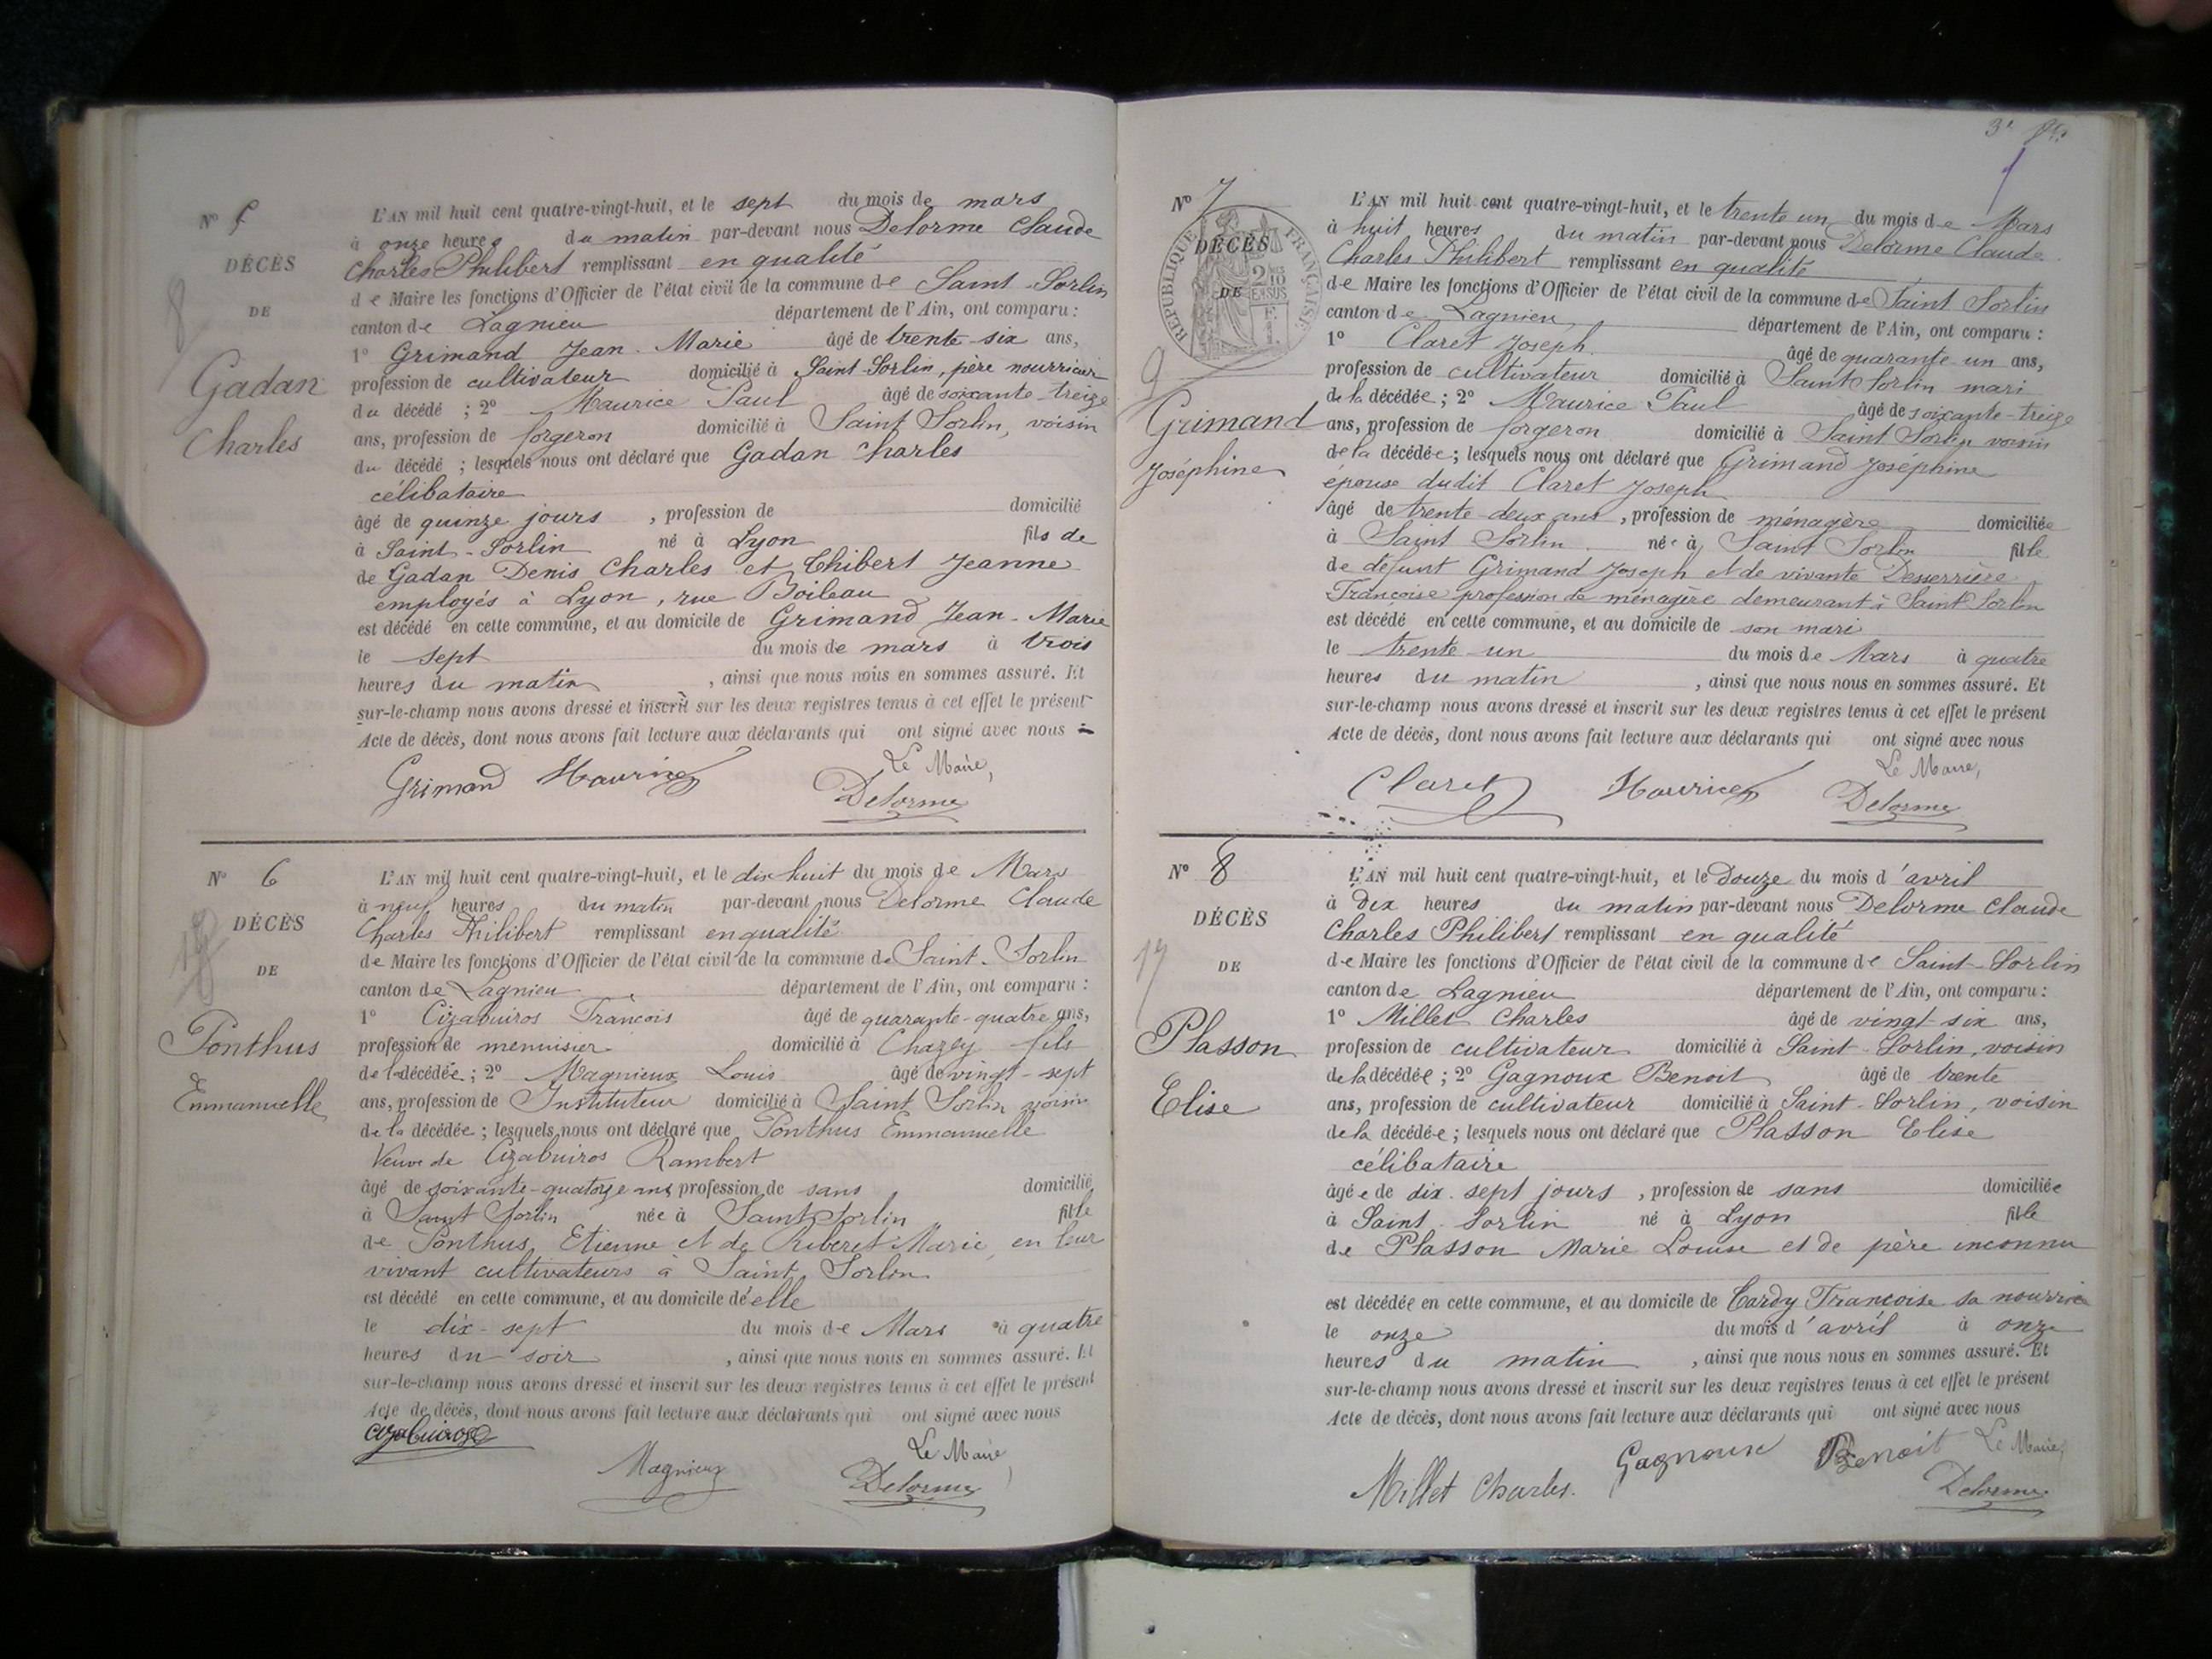 N° 5
DÉCÈS
DE
Gadan
Charles
L'AN mil huit cent quatre-vingt-huit, et le sept du mois de mars
à onze heures du matin par-devant nous Delorme Claude
Charles Philibert remplissant en qualité
de Maire les fonctions d'Officier de l'état civil de la commune de Saint-Sorlin
canton de Lagnieu département de l'Ain, ont comparu :
1° Grimand Jean-Marie âgé de trente-six ans,
profession de cultivateur domicilié à Saint-Sorlin, père nourricier
du décédé ; 2° Maurice Paul âgé de soixante-treize
ans, profession de forgeron domicilié à Saint Sorlin, voisin
du décédé ; lesquels nous ont déclaré que Gadan Charles
célibataire
âgé de quinze jours , profession de domicilié
à Saint-Sorlin né à Lyon fils de
de Gadan Denis Charles et Thibert Jeanne
employés à Lyon, rue Boileau
est décédé en cette commune, et au domicile de Grimand Jean-Marie
le sept du mois de mars à trois
heures du matin , ainsi que nous nous en sommes assuré. Et
sur-le-champ nous avons dressé et inscrit sur les deux registres tenus à cet effet le présent
Acte de décès, dont nous avons fait lecture aux déclarants qui ont signé avec nous
Le Maire,
Grimand Maurice Delorme
N° 6
DÉCÈS
DE
Ponthus
Emmanuelle
L'AN mil huit cent quatre-vingt-huit, et le dix huit du mois de Mars
à neuf heures du matin par-devant nous Delorme Claude
Charles Philibert remplissant en qualité
de Maire les fonctions d'Officier de l'état civil de la commune de Saint-Sorlin
canton de Lagnieu département de l'Ain, ont comparu :
1° Cizabuiros François âgé de quarante-quatre ans,
profession de menuisier domicilié à Chazey fils
de la décédée ; 2° Magnieux Louis âgé de vingt-sept
ans, profession de Instituteur domicilié à Saint Sorlin voisin
de la décédée ; lesquels nous ont déclaré que Ponthus Emmanuelle
Veuve de Cizabuiros Rambert
âgé de soixante-quatorze ans, profession de sans domicilié
à Saint Sorlin née à Saint Sorlin fille
de Ponthus Etienne et de Riberet Marie, en leur
vivant cultivateurs à Saint Sorlin
est décédé en cette commune, et au domicile d'elle
le dix-sept du mois de Mars à quatre
heures du soir , ainsi que nous nous en sommes assuré. Et
sur-le-champ nous avons dressé et inscrit sur les deux registres tenus à cet effet le présent
Acte de décès, dont nous avons fait lecture aux déclarants qui ont signé avec nous
Cizabuiros
Le Maire,
Magnieux Delorme
N° 7
DÉCÈS
DE
RÉPUBLIQUE FRANÇAISE
2/10 EN SUS
Grimand
Joséphine
L'AN mil huit cent quatre-vingt-huit, et le trente un du mois de Mars
à huit heures du matin par-devant nous Delorme Claude
Charles Philibert remplissant en qualité
de Maire les fonctions d'Officier de l'état civil de la commune de Saint Sorlin
canton de Lagnieu département de l'Ain, ont comparu :
1° Claret Joseph âgé de quarante-un ans,
profession de cultivateur domicilié à Saint Sorlin mari
de la décédée ; 2° Maurice Paul âgé de soixante-treize
ans, profession de forgeron domicilié à Saint Sorlin voisin
de la décédée ; lesquels nous ont déclaré que Grimand Joséphine
épouse dudit Claret Joseph
âgé de trente-deux ans , profession de ménagère domiciliée
à Saint Sorlin née à Saint Sorlin fille
de défunt Grimand Joseph et de vivante Desserrière
Françoise profession de ménagère demeurant à Saint Sorlin
est décédé en cette commune, et au domicile de son mari
le trente-un du mois de Mars à quatre
heures du matin , ainsi que nous nous en sommes assuré. Et
sur-le-champ nous avons dressé et inscrit sur les deux registres tenus à cet effet le présent
Acte de décès, dont nous avons fait lecture aux déclarants qui ont signé avec nous
Le Maire,
Claret Maurice Delorme
N° 8
DÉCÈS
DE
Plasson
Elise
L'AN mil huit cent quatre-vingt-huit, et le Douze du mois d'avril
à dix heures du matin par-devant nous Delorme Claude
Charles Philibert remplissant en qualité
de Maire les fonctions d'Officier de l'état civil de la commune de Saint-Sorlin
canton de Lagnieu département de l'Ain, ont comparu :
1° Millet Charles âgé de vingt six ans,
profession de cultivateur domicilié à Saint-Sorlin, voisin
de la décédée ; 2° Gagnoux Benoit âgé de trente
ans, profession de cultivateur domicilié à Saint-Sorlin, voisin
de la décédée ; lesquels nous ont déclaré que Plasson Elise
célibataire
âgée de dix-sept jours , profession de sans domiciliée
à Saint-Sorlin né à Lyon fille
de Plasson Marie Louise et de père inconnu
est décédée en cette commune, et au domicile de Cardy Françoise sa nourrice
le onze du mois d'avril à onze
heures du matin , ainsi que nous nous en sommes assuré. Et
sur-le-champ nous avons dressé et inscrit sur les deux registres tenus à cet effet le présent
Acte de décès, dont nous avons fait lecture aux déclarants qui ont signé avec nous
Gagnoux Benoit Le Maire,
Millet Charles. Delorme